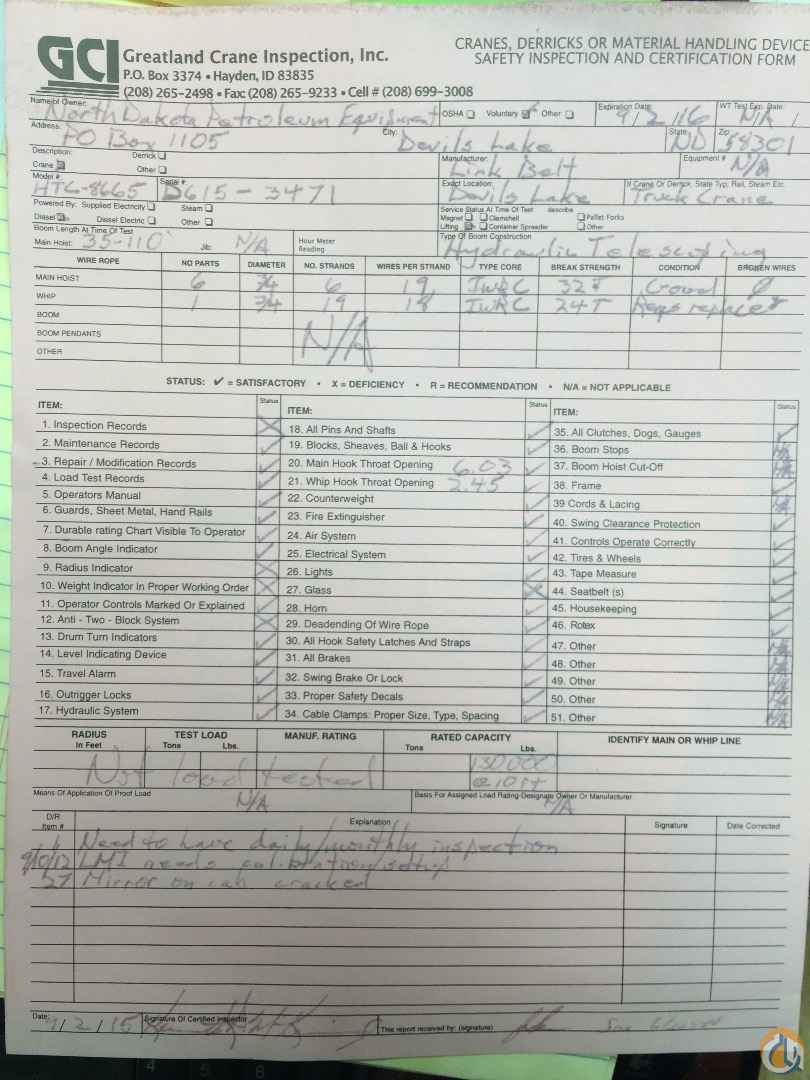 GCI Greatland Crane Inspection, Inc.
P.O. Box 3374 • Hayden, ID 83835
(208) 265-2498 • Fax (208) 265-9233 • Cell # (208) 699-3008
CRANES, DERRICKS OR MATERIAL HANDLING DEVICE
SAFETY INSPECTION AND CERTIFICATION FORM
Name of Owner: North Dakota Petroleum Equipment OSHA Voluntary Other Expiration Date: 9/2/16 WT Test Exp. Date: N/A
Address: PO Box 1105 City: Devils Lake State: ND Zip: 58301
Description: Crane Derrick Other Manufacturer: Link Belt Equipment # N/A
Model # HTC-8665 Serial # D615-3471 Exact Location: Devils Lake If Crane Or Derrick, State Typ, Rail, Steam Etc. Truck Crane
Powered By: Supplied Electricity Steam Diesel Diesel Electric Other
Service Status At Time Of Test describe
Magnet Clamshell Pallet Forks
Lifting Container Spreader Other
Boom Length At Time Of Test
Main Hoist: 35-110' Jib: N/A Hour Meter Reading Type Of Boom Construction Hydraulic Telescoping
WIRE ROPE NO PARTS DIAMETER NO. STRANDS WIRES PER STRAND TYPE CORE BREAK STRENGTH CONDITION BROKEN WIRES
MAIN HOIST 6 3/4 6 19 IWRC 32T Good 0
WHIP 1 3/4 19 18 IWRC 24T Reqs replace
BOOM
BOOM PENDANTS N/A
OTHER
STATUS: ✓ = SATISFACTORY • X = DEFICIENCY • R = RECOMMENDATION • N/A = NOT APPLICABLE
ITEM: Status
1. Inspection Records X
2. Maintenance Records ✓
3. Repair / Modification Records ✓
4. Load Test Records ✓
5. Operators Manual ✓
6. Guards, Sheet Metal, Hand Rails ✓
7. Durable rating Chart Visible To Operator ✓
8. Boom Angle Indicator ✓
9. Radius Indicator X
10. Weight Indicator In Proper Working Order X
11. Operator Controls Marked Or Explained ✓
12. Anti - Two - Block System X
13. Drum Turn Indicators ✓
14. Level Indicating Device ✓
15. Travel Alarm ✓
16. Outrigger Locks ✓
17. Hydraulic System ✓
ITEM: Status
18. All Pins And Shafts ✓
19. Blocks, Sheaves, Ball & Hooks ✓
20. Main Hook Throat Opening 6.03 ✓
21. Whip Hook Throat Opening 2.45 ✓
22. Counterweight ✓
23. Fire Extinguisher ✓
24. Air System ✓
25. Electrical System ✓
26. Lights ✓
27. Glass X
28. Horn ✓
29. Deadending Of Wire Rope ✓
30. All Hook Safety Latches And Straps ✓
31. All Brakes ✓
32. Swing Brake Or Lock ✓
33. Proper Safety Decals ✓
34. Cable Clamps: Proper Size, Type, Spacing ✓
ITEM: Status
35. All Clutches, Dogs, Gauges ✓
36. Boom Stops N/A
37. Boom Hoist Cut-Off N/A
38. Frame ✓
39 Cords & Lacing N/A
40. Swing Clearance Protection ✓
41. Controls Operate Correctly ✓
42. Tires & Wheels ✓
43. Tape Measure ✓
44. Seatbelt (s) ✓
45. Housekeeping ✓
46. Rotex ✓
47. Other N/A
48. Other N/A
49. Other N/A
50. Other N/A
51. Other N/A
RADIUS In Feet TEST LOAD Tons Lbs. MANUF. RATING RATED CAPACITY Tons Lbs. IDENTIFY MAIN OR WHIP LINE
Not load tested 130000
@10ft
Means Of Application Of Proof Load N/A Basis For Assigned Load Rating Designate Owner Or Manufacturer N/A
D/R Item # Explanation Signature Date Corrected
1 Need to have daily/monthly inspection
9/10/12 LMI needs calibration/setup
27 Mirror on cab cracked
Date: 9/2/15 Signature Of Certified Inspector This report received by: (signature)